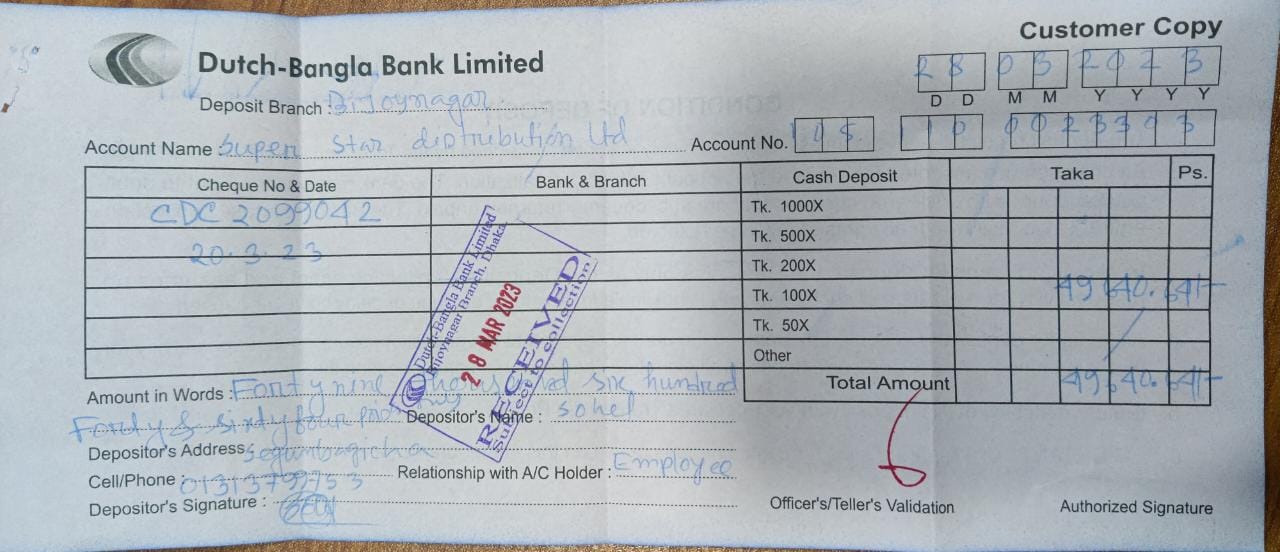 Customer Copy
Dutch-Bangla Bank Limited
28 03 2023
D D M M Y Y Y Y
Deposit Branch : Bijoynagar
Account Name : Super Star distribution Ltd Account No. 105 110 0023303
Cheque No & Date Bank & Branch Cash Deposit Taka Ps.
CDC 2099042 Tk. 1000X
20.3.23 Tk. 500X
Tk. 200X
Tk. 100X 49640.64/-
Tk. 50X
Other
Total Amount 49640.64/-
Dutch-Bangla Bank Limited
Bijoynagar Branch, Dhaka
28 MAR 2023
RECEIVED
Subject to collection
Amount in Words : Forty nine thousand six hundred
Fordy & sixty four
Depositor's Name : sohel
Depositor's Address : Segunbagicha
Cell/Phone : Relationship with A/C Holder : Employee
Depositor's Signature :
Officer's/Teller's Validation Authorized Signature